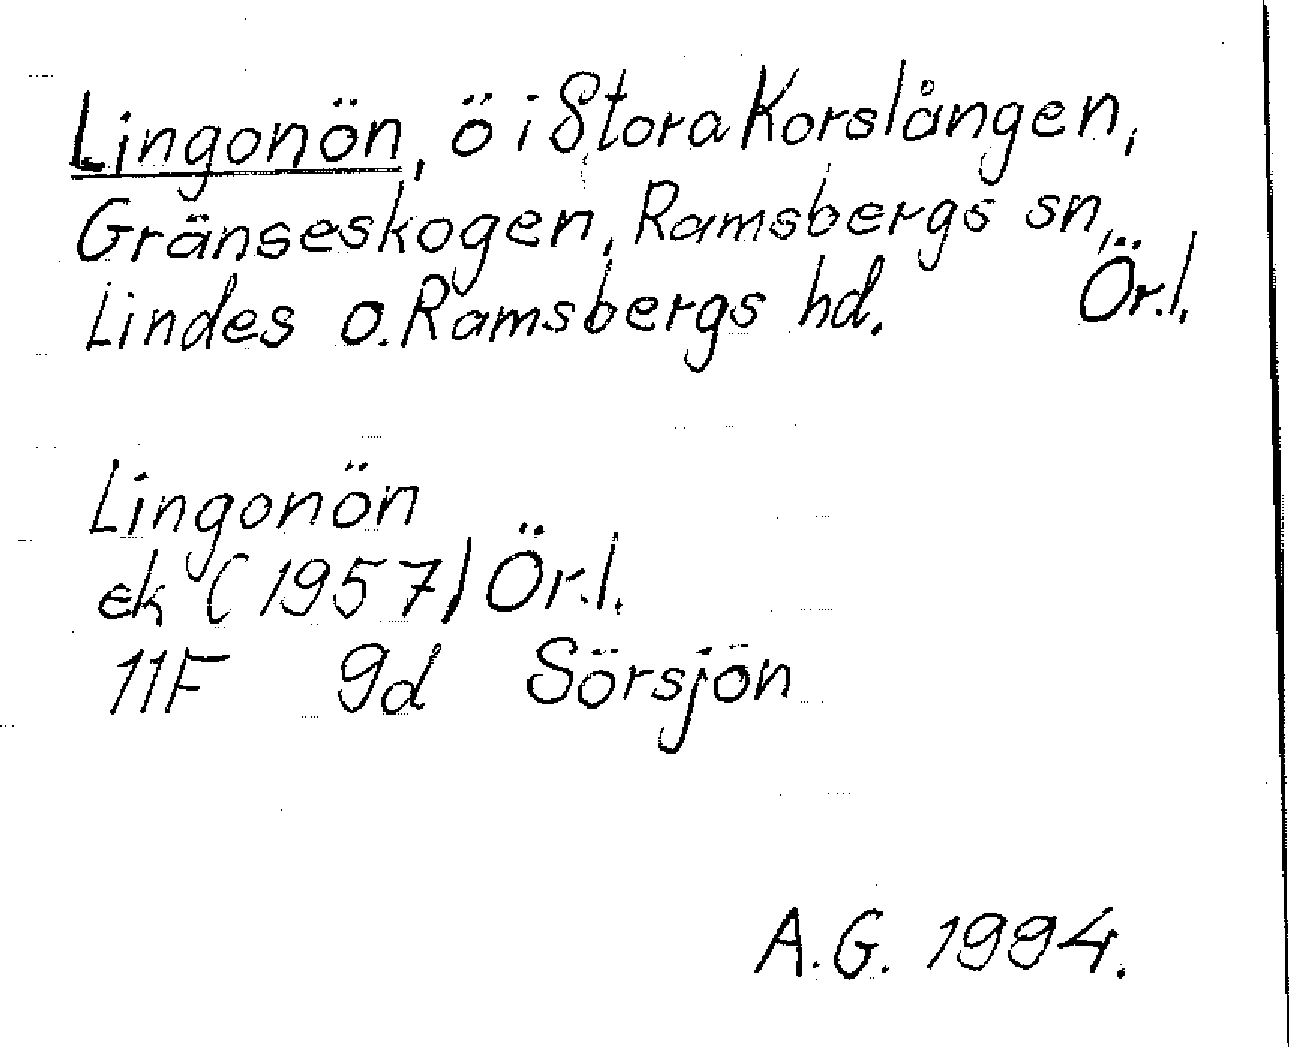 Lingonön, ö i Stora Korslången,
Gränseskogen, Ramsbergs sn,
Lindes o. Ramsbergs hd. Ör.l.
Lingonön
ek (1957) Ör.l.
11F 9d Sörsjön
A.G. 1994.